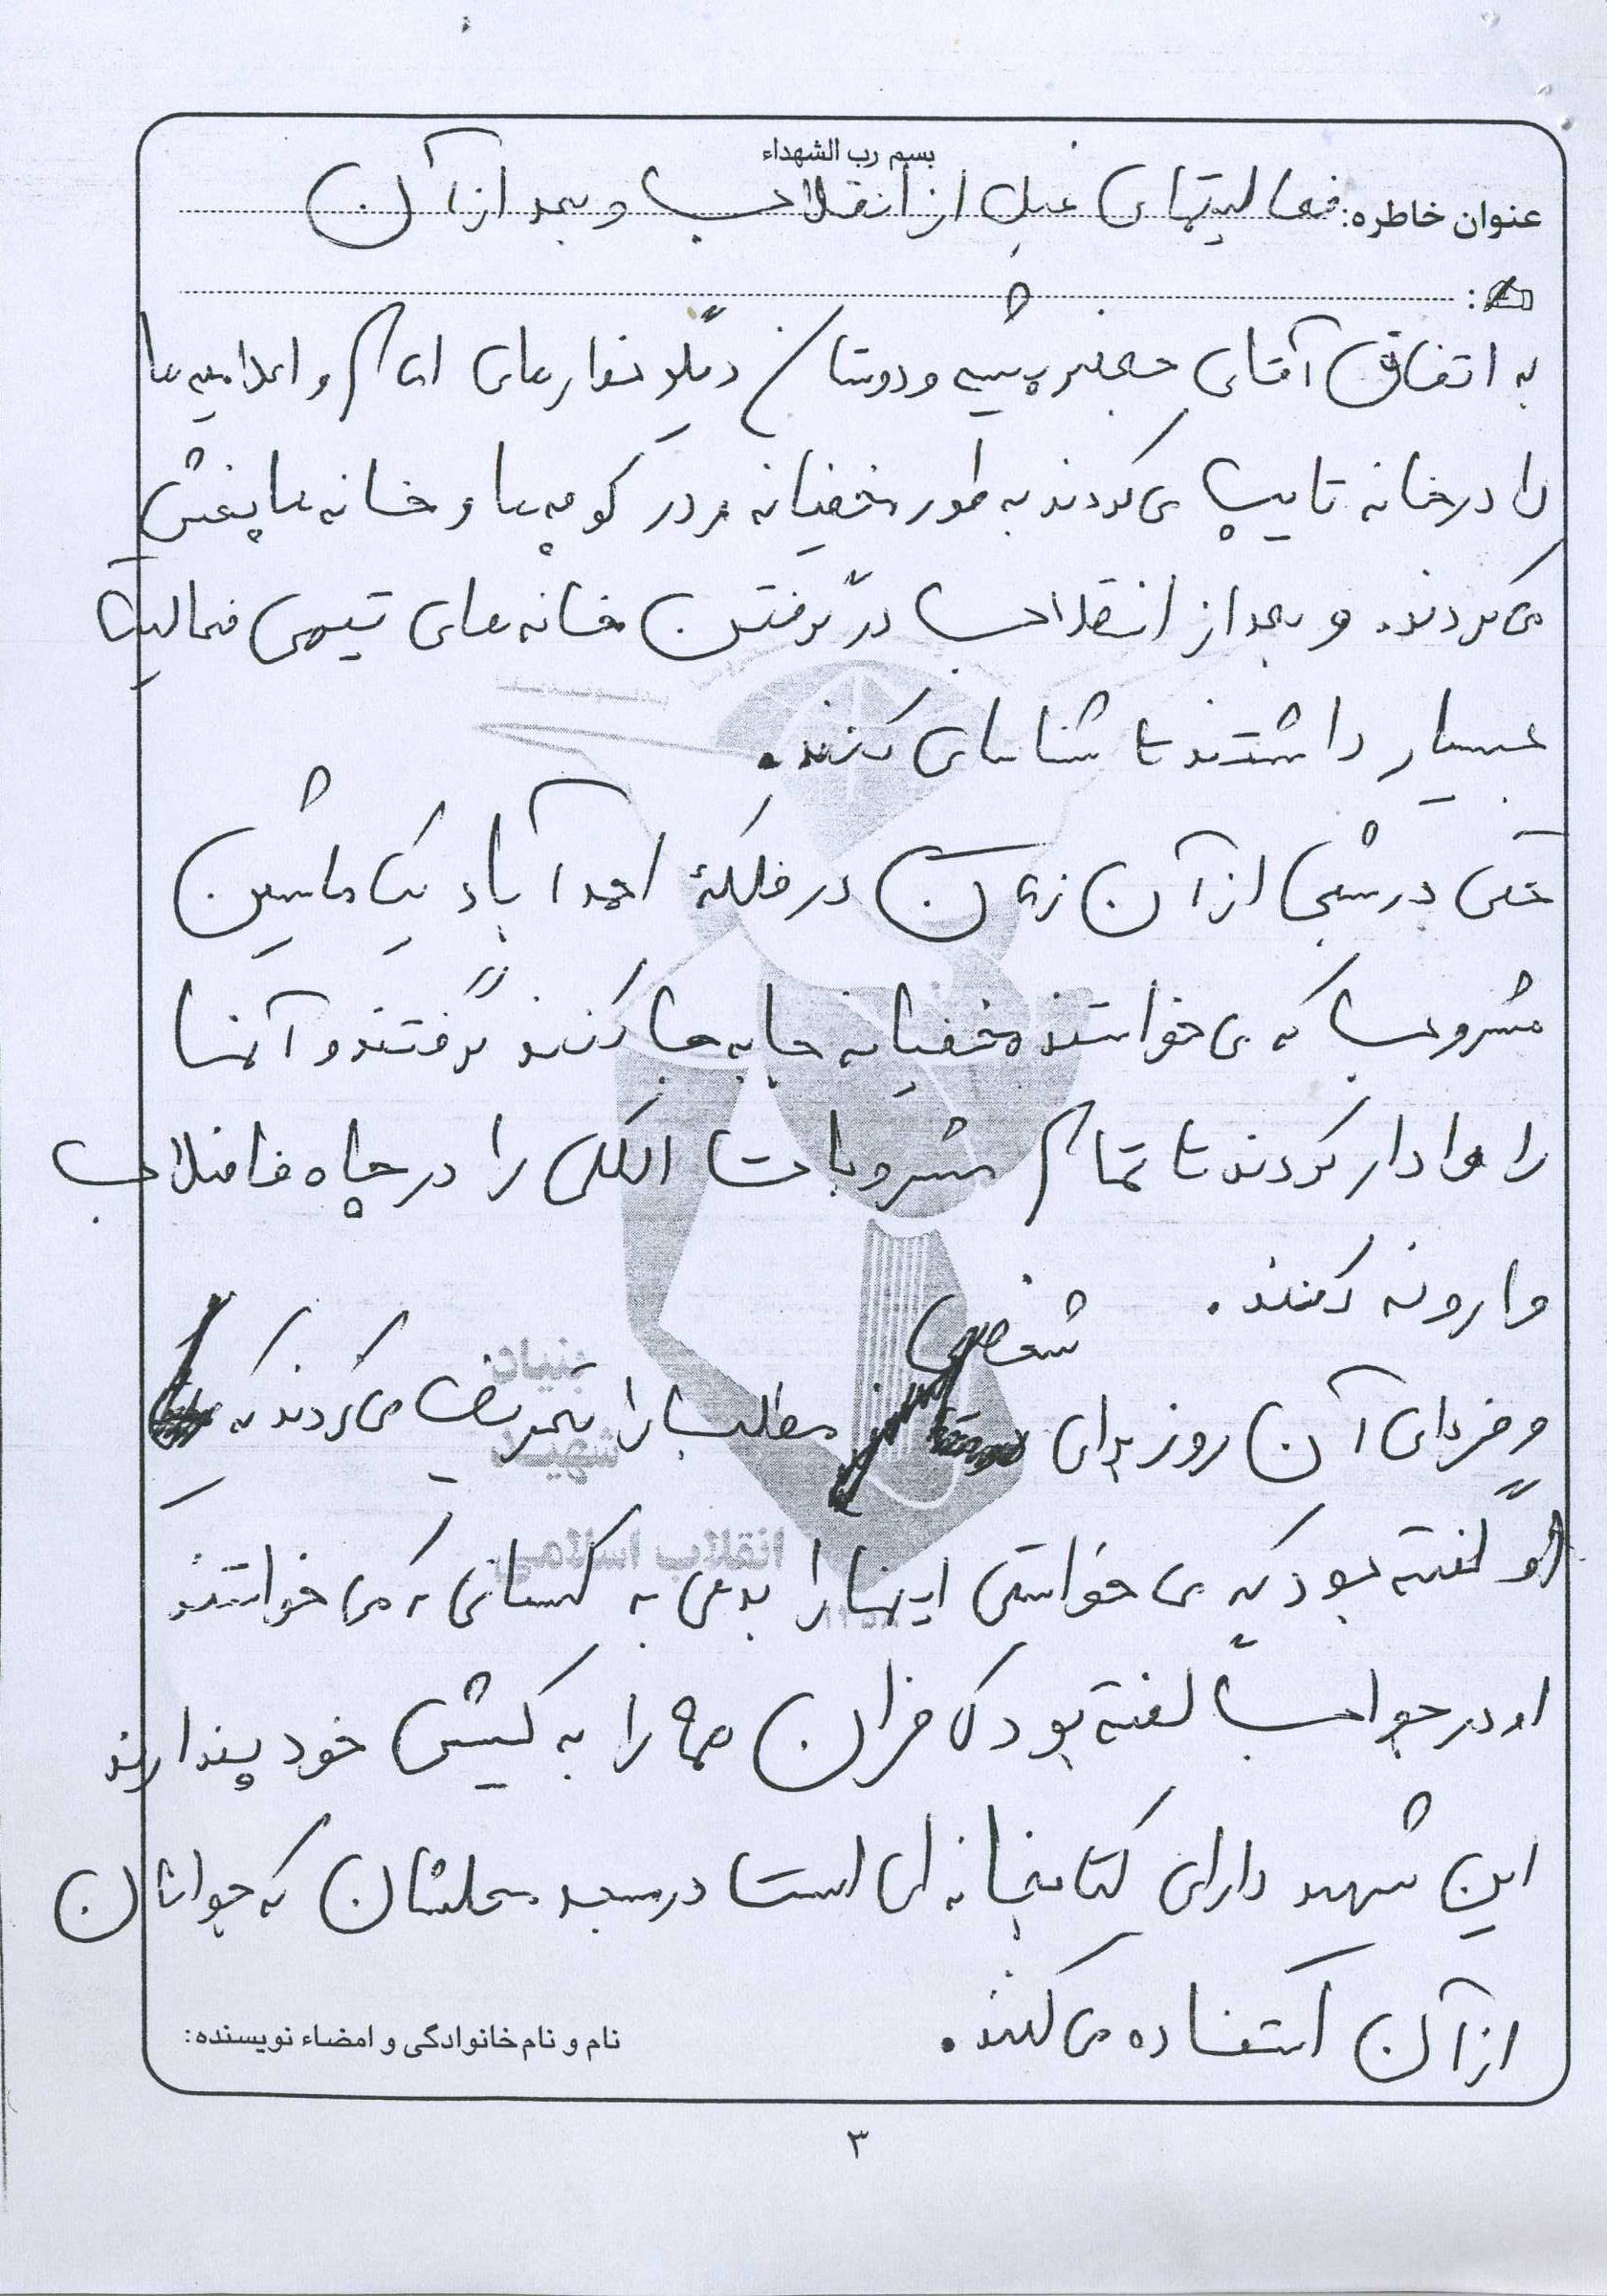 بسم رب الشهداء
عنوان خاطره: فعالیتهای قبل از انقلاب و بعد از آن
به اتفاق آقای جعفر و دوستان دیگر نوارهای امام و اعلامیه ها
را در خانه تایپ می کردند به طور مخفیانه در کوچه ها و خانه ها پخش
می کردند. و بعد از انقلاب در گرفتن خانه های تیمی فعالیت
بسیار داشتند تا شناسای کنند.
حتی در شبی از آن زمان در فلکهٔ احمد آباد یک ماشین
مشروب که می خواستند مخفیانه جا به جا کنند گرفتند و آنها
را وادار کردند تا تمام مشروبات الکلی را در چاه فاضلاب
وارونه کنند.
و فردای آن روز برای شخصی مطلب را تعریف می کردند که
او گفته بود که می خواستی اینها را بدهی به کسانی که می خواستند
او در جواب گفته بود کافران همه را به کیش خود پندارند
این شهید دارای کتابخانه ای است در مسجد محلشان که جوانان
از آن استفاده می کنند.
نام و نام خانوادگی و امضاء نویسنده:
۳
بنیاد
شهید
انقلاب اسلامی